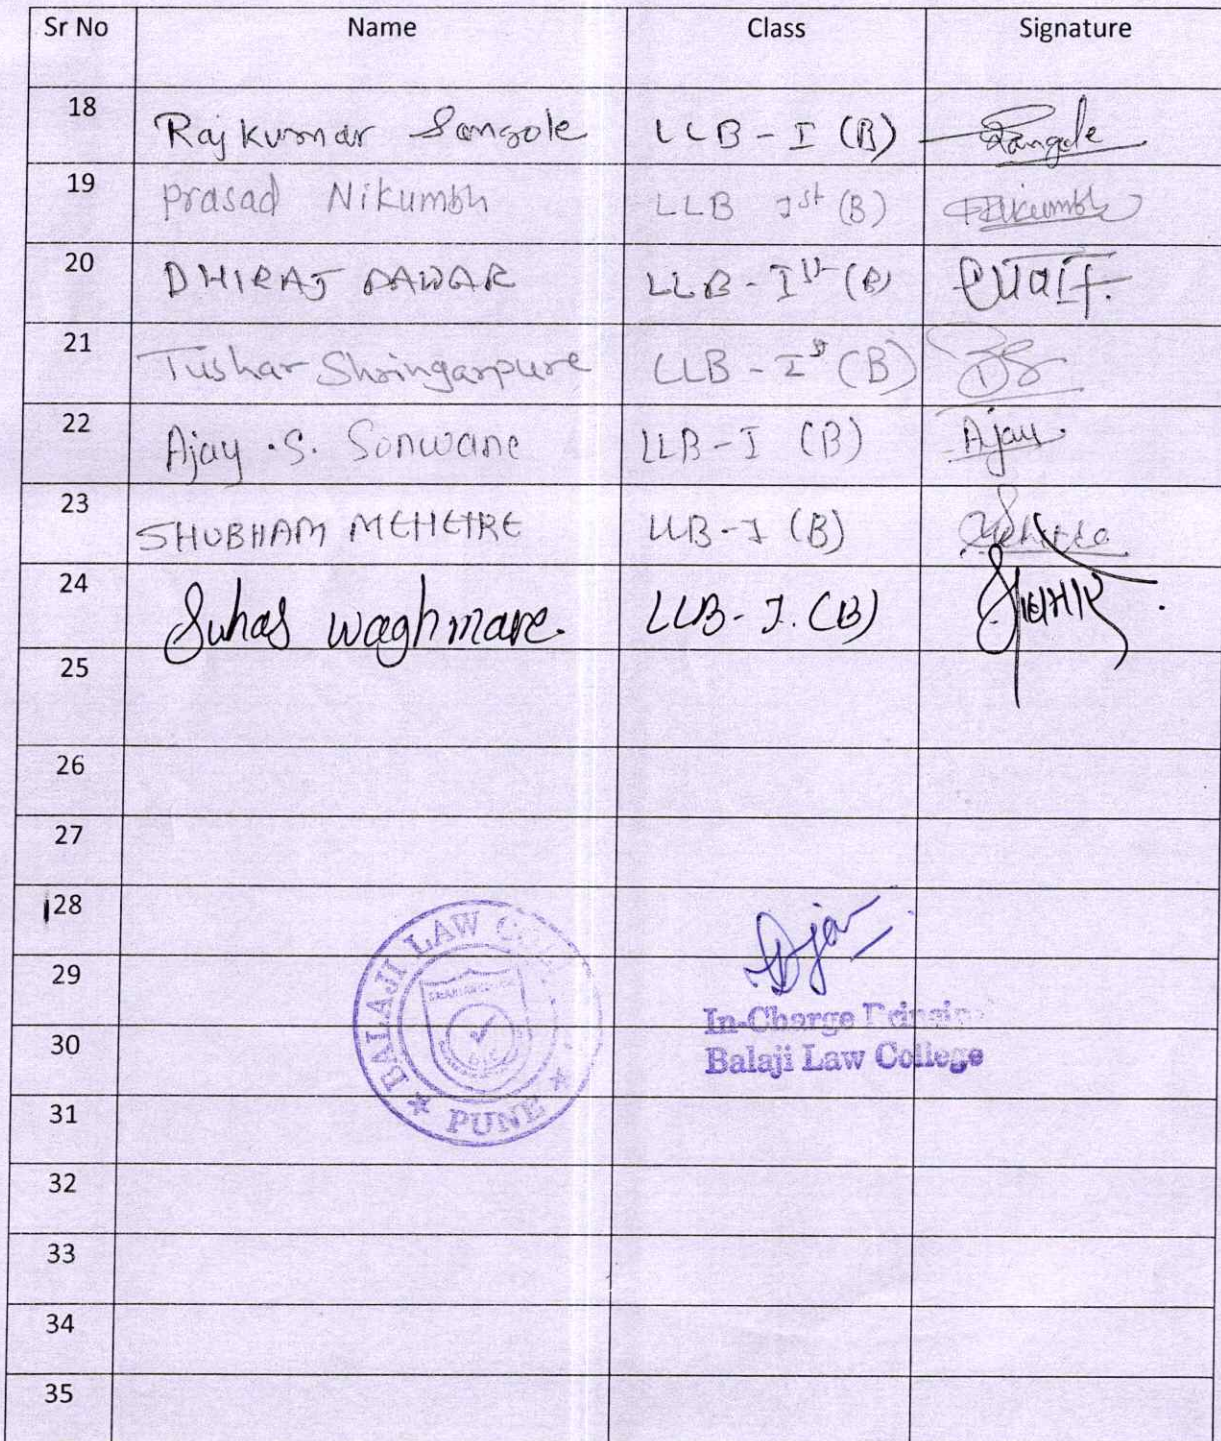 Sr No Name Class Signature
18 Rajkumar Sangole LLB - I (B) Sangole
19 prasad Nikumbh LLB Ist (B) Nikumbh
20 DHIRAJ PAWAR LLB - Ist (B)
21 Tushar Shringarpure LLB - Ist (B)
22 Ajay .S. Sonwane LLB - I (B) Ajay.
23 SHUBHAM MEHETRE LLB - I (B)
24 Suhas waghmare. LLB - I. (B)
25
26
27
28
29
30
31
32
33
34
35
BALAJI LAW
PUNE
In-Charge
Balaji Law College